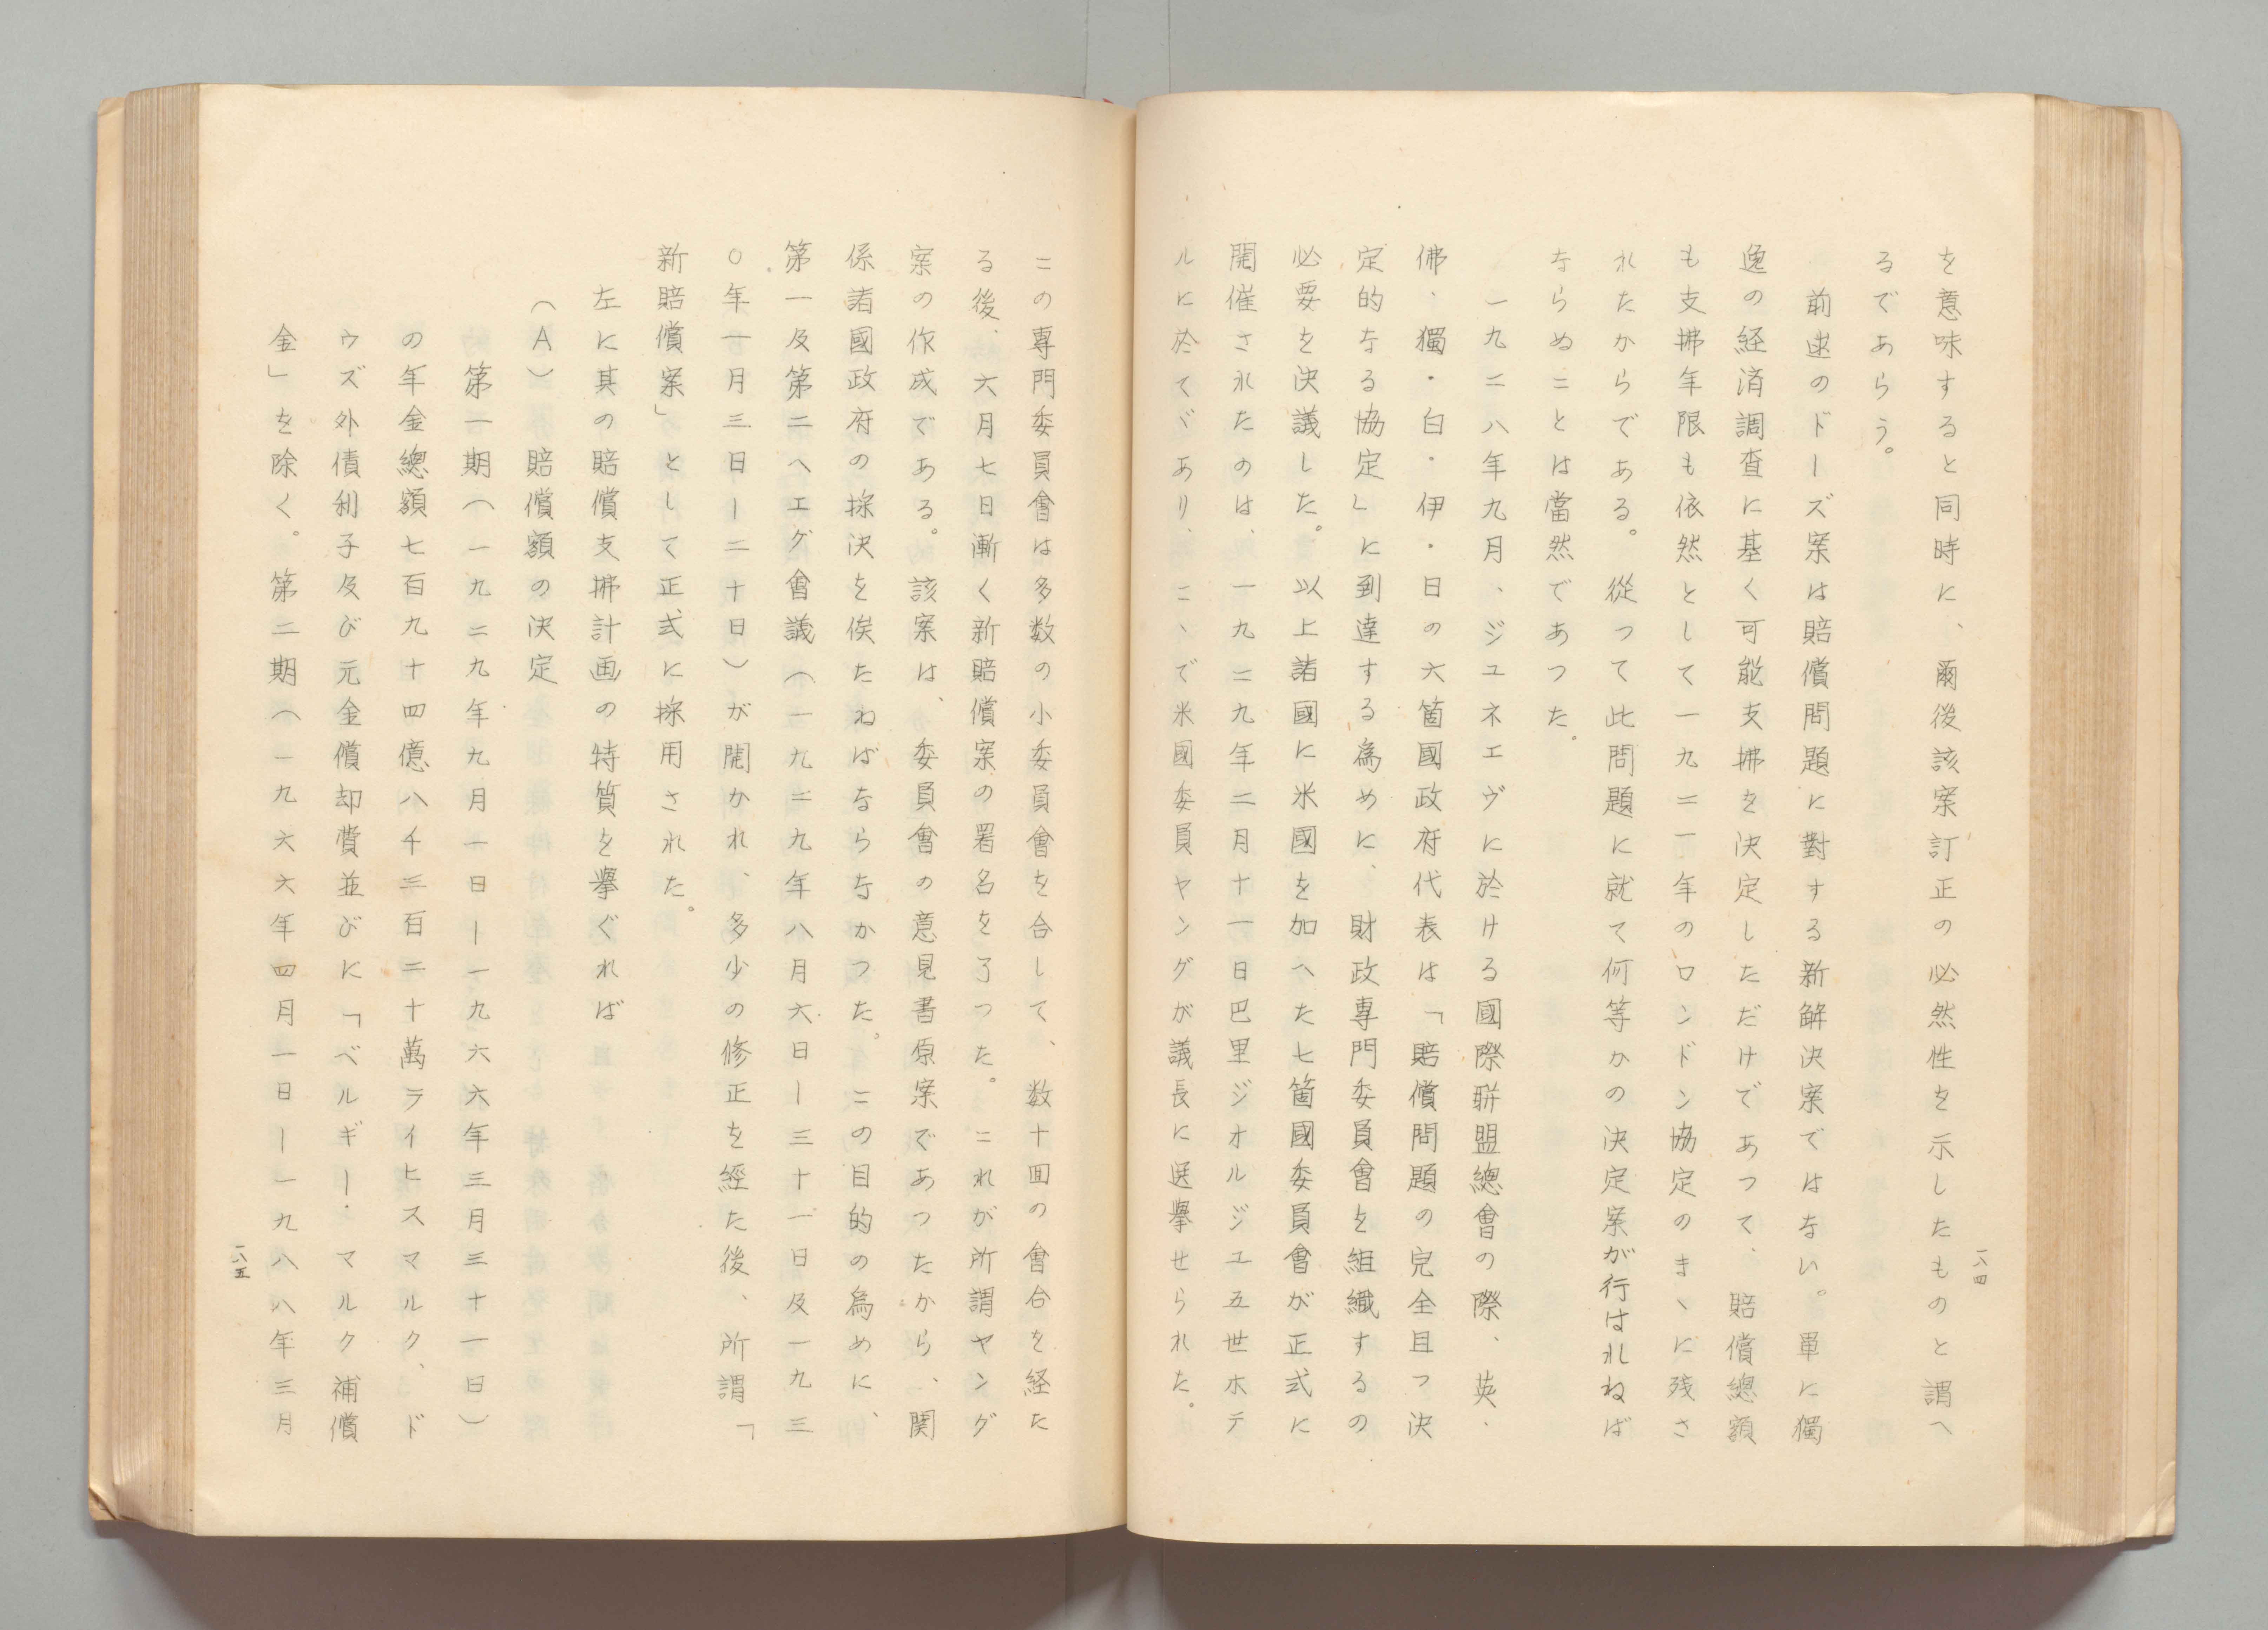 を意味すると同時に、爾後該案訂正の必然性を示したものと謂へ
るであらう。
前述のドーズ案は賠償問題に對する新解決案ではない。單に獨
逸の経済調査に基く可能支拂を決定しただけであつて、賠償總額
も支拂年限も依然として一九二一年のロンドン協定のまヽに残さ
れたからである。從つて此問題に就て何等かの決定案が行はれねば
ならぬことは當然であつた。
一九二八年九月、ジュネエヴに於ける國際聯盟總會の際、英・
佛・獨・白・伊・日の六箇國政府代表は「賠償問題の完全且つ決
定的なる協定」に到達する為めに、財政專門委員會を組織するの
必要を決議した。以上諸國に米國を加へた七箇國委員會が正式に
開催されたのは、一九二九年二月十一日巴里ジオルジュ五世ホテ
ルに於てゞあり、こヽで米國委員ヤングが議長に選擧せられた。
一八四
この專門委員會は多数の小委員會を合して、数十囬の會合を経た
る後、六月七日漸く新賠償案の署名を了つた。これが所謂ヤング
案の作成である。該案は、委員會の意見書原案であつたから、関
係諸國政府の採決を俟たねばならなかつた。この目的の為めに、
第一及第二ヘエグ會議（一九二九年八月六日ー三十一日及一九三
〇年一月三日ー二十日）が開かれ、多少の修正を經た後、所謂「
新賠償案」として正式に採用された。
左に其の賠償支拂計画の特質を擧ぐれば
（A）　賠償額の決定
第一期（一九二九年九月一日ー一九六六年三月三十一日）
の年金總額七百九十四億八千三百二十萬ライヒスマルク、ド
ウズ外債利子及び元金償却費並びに「ベルギー・マルク補償
金」を除く。第二期（一九六六年四月一日ー一九八八年三月
一八五